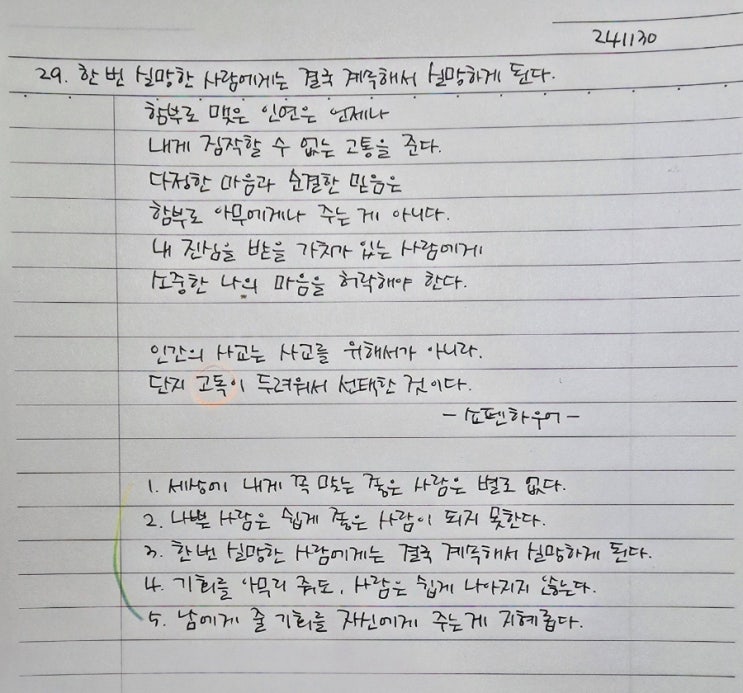 241130
29. 한 번 실망한 사람에게는 결국 계속해서 실망하게 된다.
함부로 맺은 인연은 언제나
내게 짐작할 수 없는 고통을 준다.
다정한 마음과 순결한 믿음은
함부로 아무에게나 주는 게 아니다.
내 진심을 받을 가치가 있는 사람에게
소중한 나의 마음을 허락해야 한다.
인간의 사교는 사교를 위해서가 아니라.
단지 고독이 두려워서 선택한 것이다.
- 쇼펜하우어 -
1. 세상에 내게 꼭 맞는 좋은 사람은 별로 없다.
2. 나쁜 사람은 쉽게 좋은 사람이 되지 못한다.
3. 한 번 실망한 사람에게는 결국 계속해서 실망하게 된다.
4. 기회를 아무리 줘도, 사람은 쉽게 나아지지 않는다.
5. 남에게 줄 기회를 자신에게 주는게 지혜롭다.